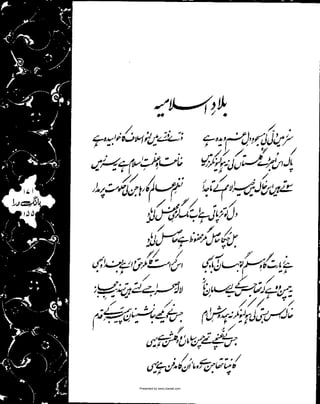 بلادِ اسلامیہ
سرزمیں دلّی کی مسجودِ دلِ غم دیدہ ہے ذرّے ذرّے میں لہو اسلاف کا خوابیدہ ہے
پاک اس اجڑے گلستاں کی نہ ہو کیونکر زمیں خانقاہِ عظمتِ اسلام ہے یہ سرزمیں
سوتے ہیں اس خاک میں خیر الامم کے تاجدار نظمِ عالم کا رہا جن کی حکومت پر مدار
دل کو تڑپاتی ہے اب تک گرمیِ محفل کی یاد
جل چکا حاصل مگر محفوظ ہے حاصل کی یاد
ہے زیارت گاہِ مسلم گو جہان آباد بھی اس کرامت کا مگر حقدار ہے بغداد بھی
یہ چمن وہ ہے کہ تھا جس کے لیے سامانِ ناز لالۂ صحرا جسے کہتے ہیں تہذیبِ حجاز
خاک اس بستی کی ہو کیونکر نہ ہمدوشِ ارم جس نے دیکھے جانشینانِ پیمبر کے قدم
جس کے غنچے تھے چمن ساماں، وہ گلشن ہے یہی
کانپتا تھا جن سے روما، ان کا مدفن ہے یہی
۱۷۱
بانگِ درا
۱۵۵
Presented by www.ziaraat.com